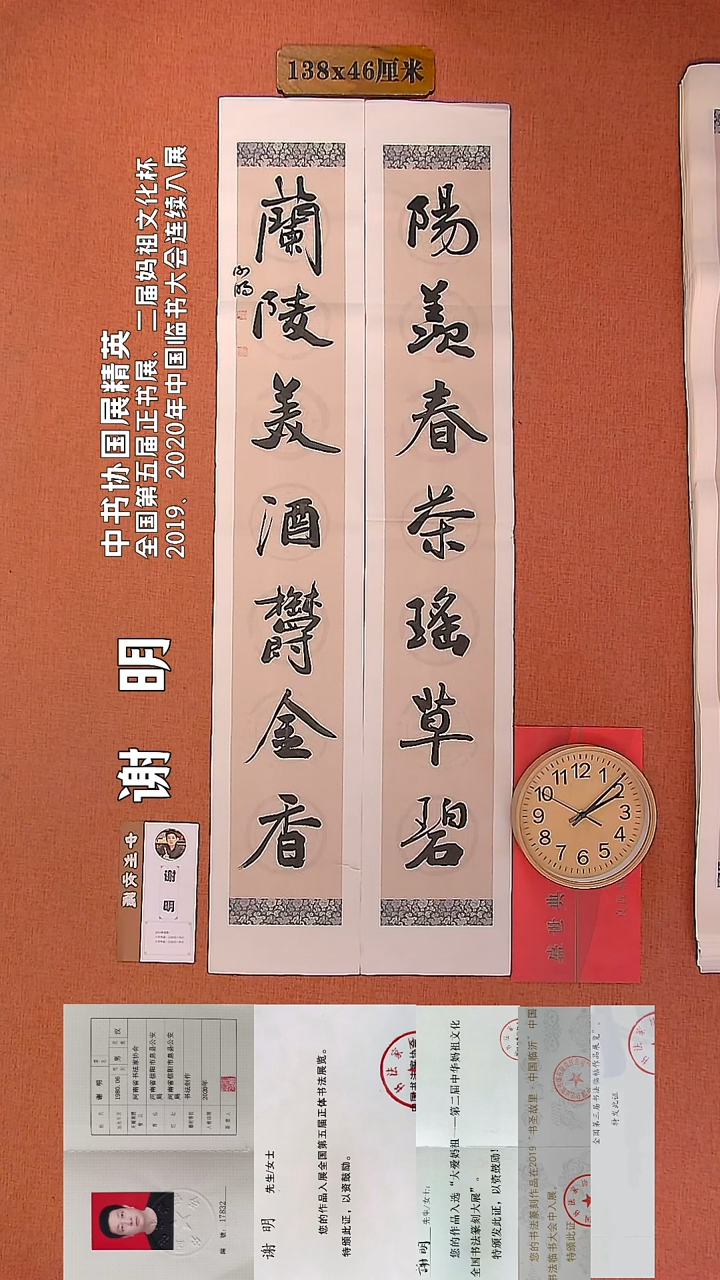 138x46厘米
陽羨春茶瑤草碧
蘭陵美酒鬱金香
谢明
中书协国展精英
全国第五届正书展、二届妈祖文化杯
2019、2020年中国临书大会连续入展
谢明
1980.06
男
汉
河南省书法家协会
河南省信阳市息县公安局
河南省信阳市息县公安局
书法创作
2020年
编号：17832
谢 明 先生/女士
您的作品入展全国第五届正体书法展览。
特颁此证，以资鼓励。
謝明 先生/女士：
您的作品入选“大爱妈祖——第二届中华妈祖文化
全国书法篆刻大展”。
特颁发此证，以资鼓励！
您的书法篆刻作品在2019“书圣故里·中国临沂”中国
书法临书大会中入展。
特颁此证
全国第三届书法临帖作品展览”。
特发此证
12
1
2
3
4
5
6
7
8
9
10
11